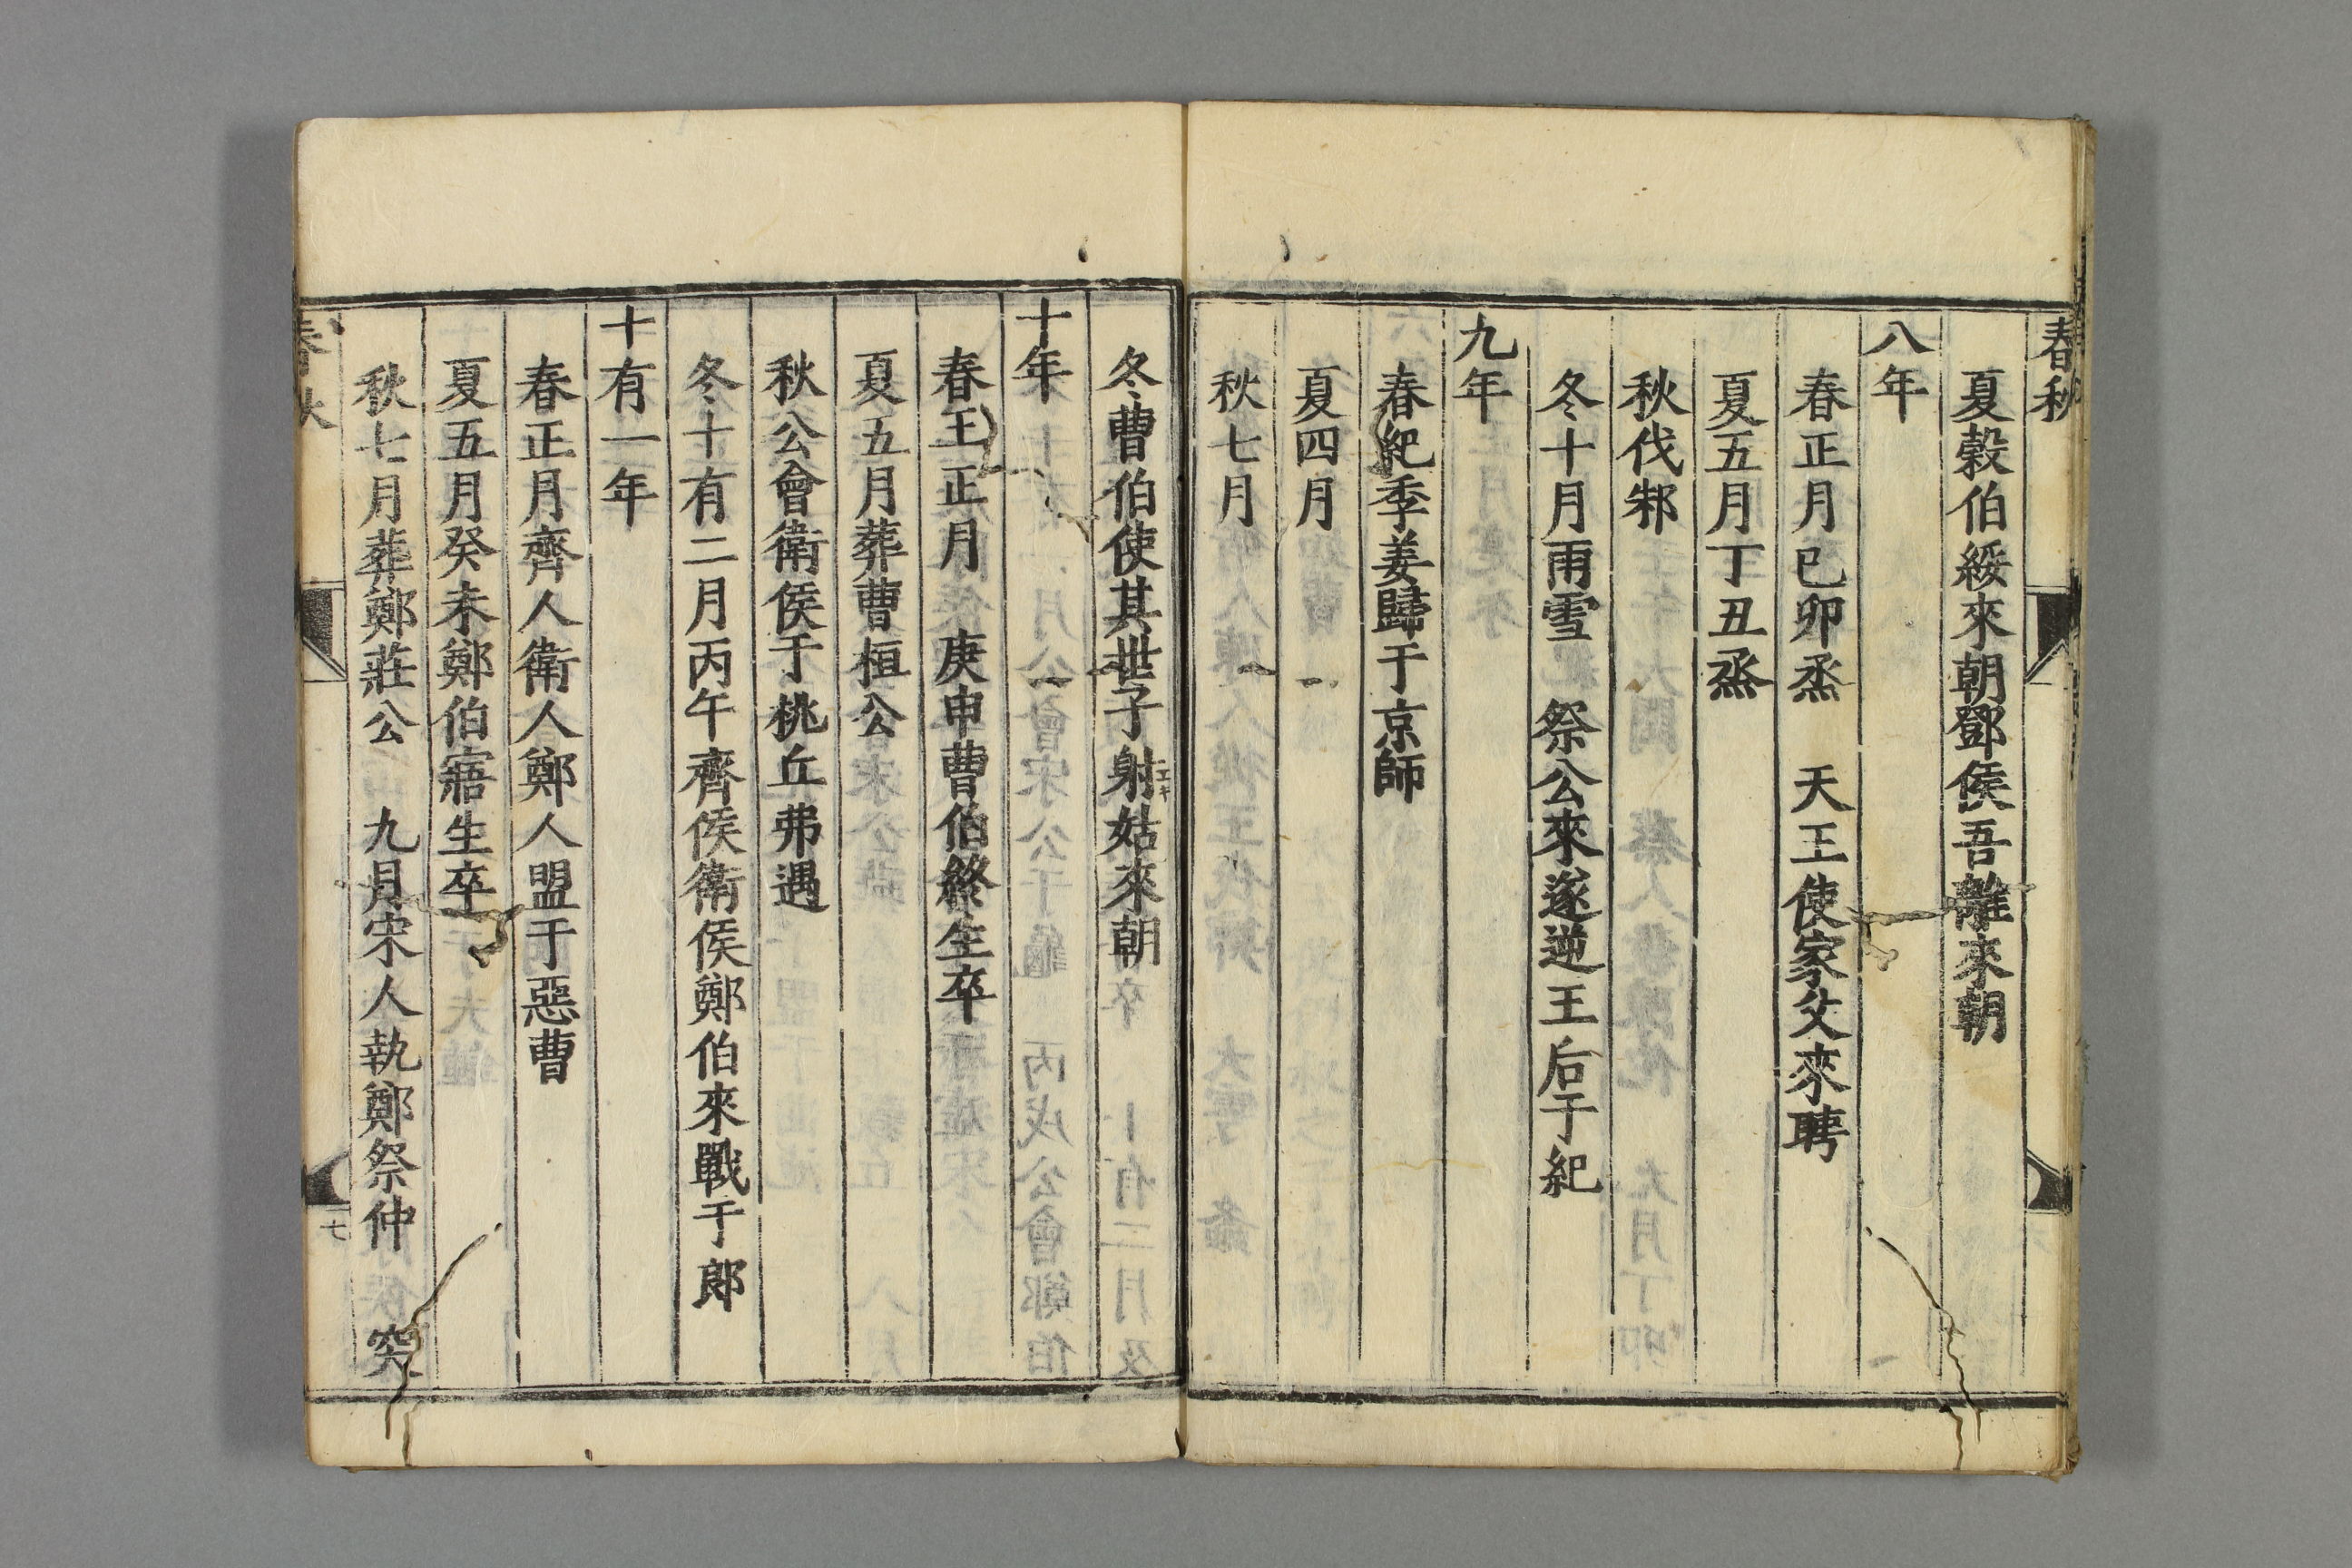 春秋
夏穀伯綏來朝鄧侯吾離來朝
八年
春正月已卯烝　天王使家父來聘
夏五月丁丑烝
秋伐邾
冬十月雨雪　祭公來遂逆王后于紀
九年
春紀季姜歸于京師
夏四月
秋七月
冬曹伯使其世子射姑來朝
エキ
十年
春王正月　庚申曹伯終生卒
夏五月葬曹桓公
秋公會衛侯于桃丘弗遇
冬十有二月丙午齊侯衛侯鄭伯來戰于郎
十有一年
春正月齊人衛人鄭人盟于惡曹
夏五月癸未鄭伯寤生卒
秋七月葬鄭莊公　九月宋人執鄭祭仲　突
春秋
七